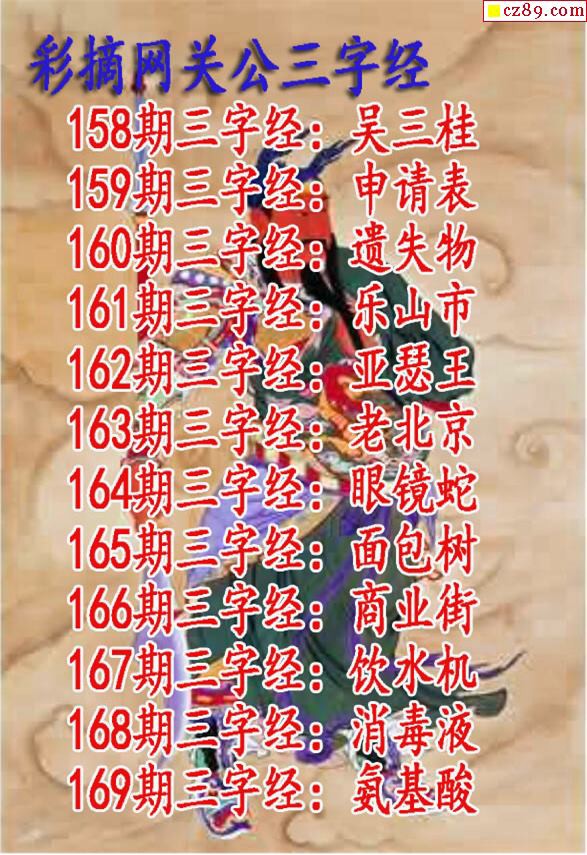 cz89.com
彩摘网关公三字经
158期三字经：吴三桂
159期三字经：申请表
160期三字经：遗失物
161期三字经：乐山市
162期三字经：亚瑟王
163期三字经：老北京
164期三字经：眼镜蛇
165期三字经：面包树
166期三字经：商业街
167期三字经：饮水机
168期三字经：消毒液
169期三字经：氨基酸